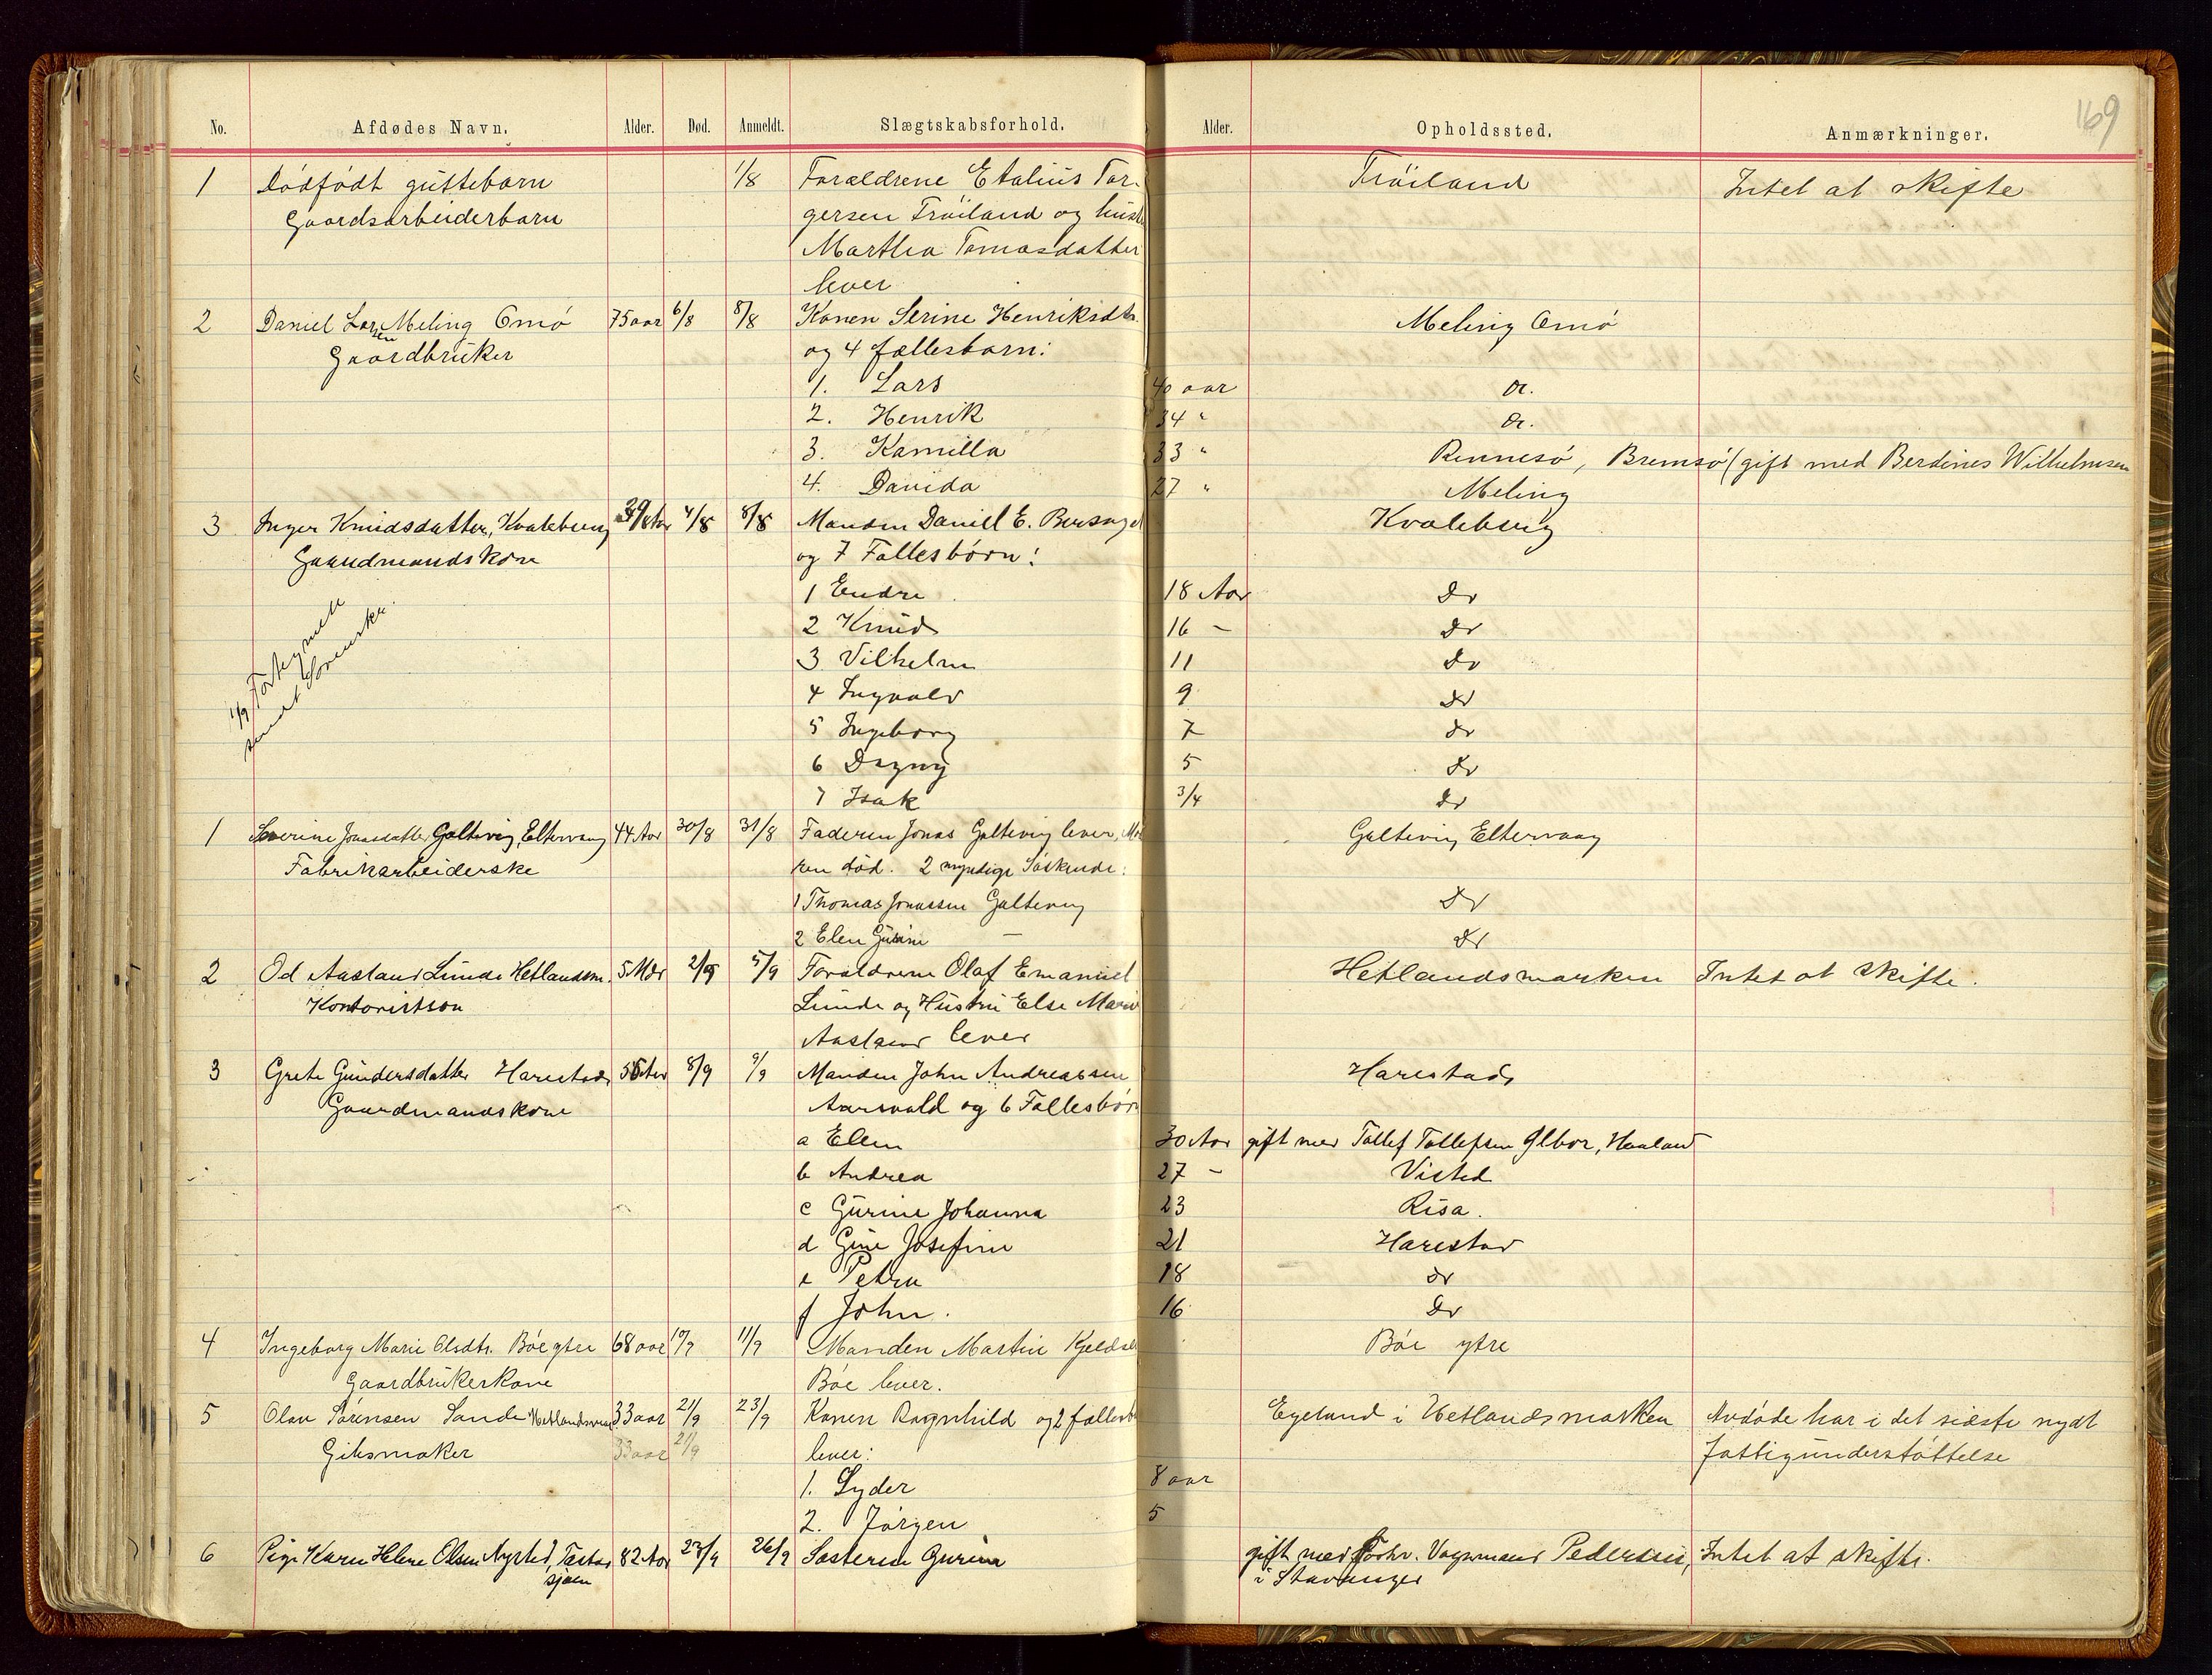 169
No. Afdødes Navn. Alder. Død. Anmeldt. Slægtskabsforhold. Alder. Opholdssted. Anmærkninger.
1 Dødfødt guttebarn 1/8 Forældrene Etalius Tor- Trøiland Intet at skifte
Gaardsarbeiderbarn gersen Trøiland og hustr
Marthea Tomasdatter
lever
2 Daniel Larsen Meling Omø 75 aar 6/8 8/8 Konen Serine Henriksdtr. Meling Omø
Gaardbruker og 4 fællesbarn:
1. Lars 40 aar do.
2. Henrik 34 " do.
3. Kamilla 33 " Rennesø, Bremsø (gift med Berdines Wilhelmsen
4. Davida 27 " Meling
3 Inger Knudsdatter, Kvaleberg 39 Aar 4/8 8/8 Manden Daniel E. Bersagel Kvaleberg
Gaardmandskone og 7 Fællesbørn:
1 Endre 18 Aar do
2 Knud 16 - do
3 Vilhelm 11 do
4 Ingvald 9 do
5 Ingeborg 7 do
6 Dagny 5 do
7 Isak 3/4 do
1 Severine Jonasdatter Galtevig, Eltervaag 44 Aar 30/8 31/8 Faderen Jonas Galtevig lever, Mo Galtevig Eltervaag
Fabrikarbeiderske ren død. 2 myndige Søskende:
1 Thomas Jonassen Galtevig do
2 Elen Gurine — do
2 Od Aasland Lunde Hetlandsm. 5 Mdr 2/9 5/9 Forældrene Olaf Emanuel Hetlandsmarken Intet at skifte.
Kontoristsøn Lunde og Hustru Else Marie
Aasland lever
3 Grete Gundersdatter Harestad 55 Aar 8/9 9/9 Manden John Andreassen Harestad
Gaardmandskone Aarsvold og 6 Fællesbørn
a Elen 30 Aar gift med Tollef Tollefsen Haaland
b Andrea 27 - Visted
c Gurine Johanna 23 Risa.
d Gine Josefine 21 Harestad
e Petra 18 do
f John. 16 do
4 Ingeborg Marie Olsdtr. Bøe ytre 68 aar 10/9 11/9 Manden Martin Kjeldsen Bøe ytre
Gaardbrukerkone Bøe lever.
5 Olav Sørensen Sande Hetlandsmar 33 aar 21/9 23/9 Konen Ragnhild og 2 fællesb Egeland i Hetlandsmarken Avdøde har i det sidste nydt
Gibsmaker 33 aar 21/9 lever: fattigunderstøttelse
1. Syder 8 aar
2. Jørgen 5
6 Pige Karen Helene Olsen Nysted, Tasta 82 Aar 23/9 26/9 Søsteren Gurine gift med Pedersen, Intet at skifte.
sjøen i Stavanger